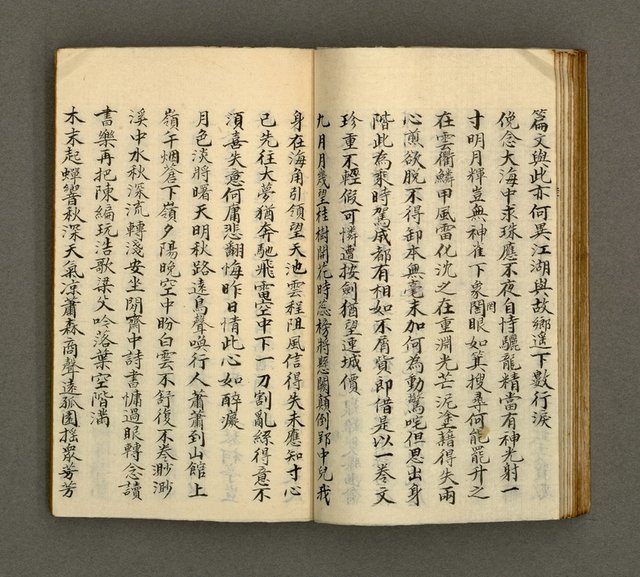 篇文與此亦何異江湖與故鄉遙下數行淚
俛念大海中求珠應不夜自恃驪龍精當有神光射一
寸明月輝豈無神隹下衆罔眼如箕搜尋何能罷升之
罔
在雲衢鱗甲風雷化沈之在重淵光芒泥塗藉得失兩
心煎欲脫不得卸本無毫末加何為動驚咤但思出身
階此為乘時駕成都有相如不屑賓郎借是以一卷文
珍重不輕假可憐遭按劍猶望連城價
九月月幾望桂樹開花時蕊榜將懸闕顛倒郢中兒我
身在海角引領望天池雲程阻風信得失未應知寸心
已先往大夢猶奔馳飛電空中下一刀割亂絲得意不
須喜失意何庸悲翻悔昨日情此心如醉癡
月色淡將曙天明秋路遠鳥聲喚行人蕭蕭到山館上
嶺午烟蒼下嶺夕陽晚空中盼白雲不舒復不卷渺渺
溪中水秋深流轉淺安坐閒齋中詩書慵過眼轉念讀
書樂再把陳編玩浩歌梁父吟落葉空階滿
木末起蟬響秋深天氣凉蕭森商聲遠孤園搖衆芳芳